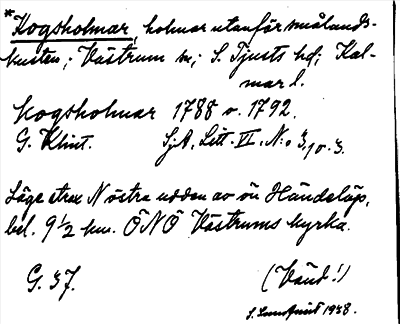 *Kogsholmar, holmar utanför smålands-
kusten; Västrum sn; S. Tjusts hd; Kal-
mar l.
Kogsholmar 1788 o. 1792.
G. Klint. SjA, Litt. VI, N:o 3, 10. 3.
Läge strax N östra udden av ön Händelöp,
bel. 9 1/2 km. ÖNÖ Västrums kyrka.
G. 37. (Vänd!)
S. Lundquist 1938.